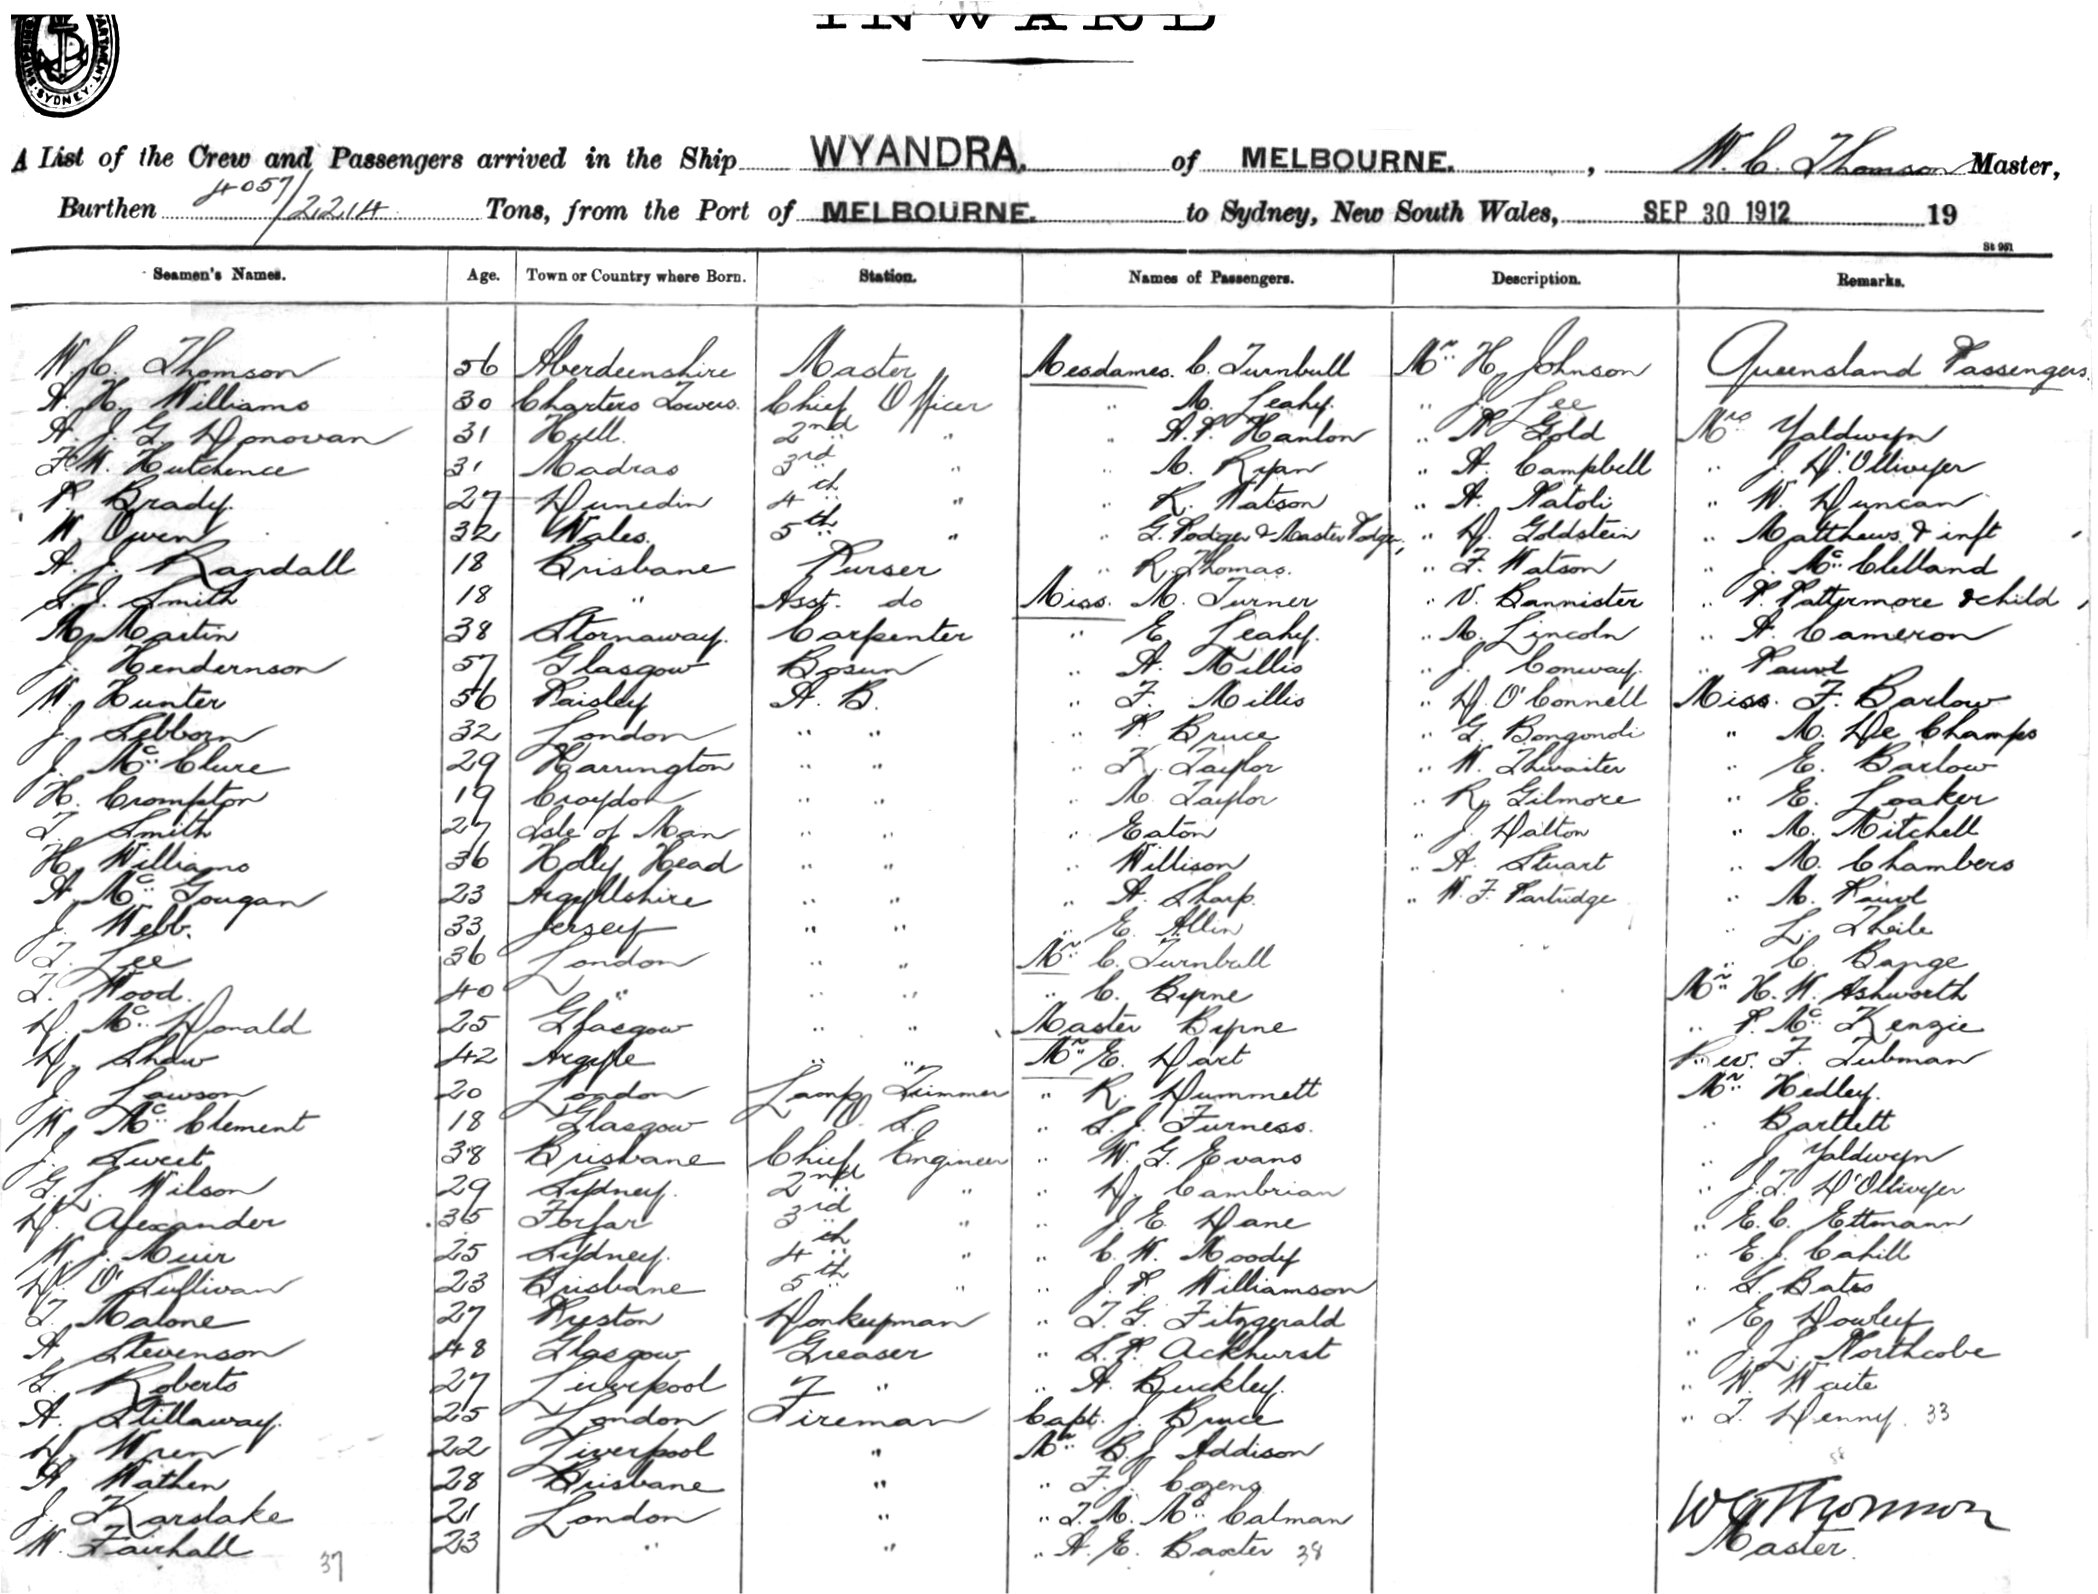 INWARD
A List of the Crew and Passengers arrived in the Ship WYANDRA. of MELBOURNE. , W. C. Thomson Master,
Burthen 4057/2214 Tons, from the Port of MELBOURNE. to Sydney, New South Wales, SEP 30 1912 19
St 951
Seamen's Names. Age. Town or Country where Born. Station. Names of Passengers. Description. Remarks.
W. C. Thomson 56 Aberdeenshire Master Mesdames. C. Turnbull Mr. H. Johnson Queensland Passengers
A. H. Williams 30 Charters Towers. Chief Officer " M. Leahy. " J. Lee
A. J. G. Donovan 31 Hull. 2nd " " A. P. Hanlon " A. Gold Mrs Yaldwyn
F. W. Hutchence 31 Madras 3rd " " M. Ryan " A. Campbell " J. D'Olliveyer
P. Brady. 27 Dunedin 4th " " R. Watson " A. Natoli " W. Duncan
W. Owen 32 Wales. 5th " " G. Podger & Master Podger, " D. Goldstein " Matthews & inft
A. J. Randall 18 Brisbane Purser " R. Thomas. " F. Watson " J. McClelland
S. J. Smith 18 " Asst. do Miss. M. Turner " V. Bannister " P. Pattermore & child
M. Martin 38 Stornaway. Carpenter " E. Leahy. " M. Lincoln " A. Cameron
J. Hendernson 57 Glasgow Bosun " A. Millis " J. Conway. " Pauvl
W. Hunter 56 Paisley A. B. " F. Millis " D. O'Connell Miss. F. Barlow
J. Sebborn 32 London " " " P. Bruce " G. Bongondi " M. De Champs
J. McClure 29 Harrington " " " K. Taylor " W. Thwaites " E. Barlow
H. Crompton 19 Croydon " " " M. Taylor " R. Gilmore " E. Loaker
T. Smith 27 Isle of Man " " " Eaton " J. Dalton " M. Mitchell
H. Williams 36 Holly Head " " " Willison " A. Stuart " M. Chambers
A. McGougan 23 Argyllshire " " " A. Sharp. " W. F. Partridge " M. Pauvl
J. Webb. 33 Jersey " " " E. Allin " L. Theile
T. Lee 36 London " " Mr. C. Turnbull " C. Bange
T. Wood. 40 " " " " C. Byrne Mr. H. W. Ashworth
D. McDonald 25 Glasgow " " Master Byrne " P. McKenzie
D. Shaw 42 Argyle " " Mr. E. Dart Rev. F. Tubman
J. Lawson 20 London Lamp Trimmer " R. Dummett Mr. Hedley.
W. McClement 18 Glasgow O. S. " S. J. Furness. " Bartlett
J. Sweet 38 Brisbane Chief Engineer " W. G. Evans " J. Yaldwyn
G. L. Wilson 29 Sydney. 2nd " " D. Cambrian " J. T. D'Olliveyer
D. Alexander 35 Forfar 3rd " " J. E. Dane " E. C. Ettmann
W. J. Muir 25 Sydney. 4th " " C. W. Moody " E. J. Cahill
D. O'Sullivan 23 Brisbane 5th " " J. P. Williamson " S. Bates
T. Malone 27 Preston Donkeyman " T. G. Fitzgerald " E. Dowley
A. Stevenson 48 Glasgow Greaser " S. P. Ackhurst " J. L. Northcobe
G. Roberts 27 Liverpool " " A. Buckley. " W. Waite
A. Stillaway. 25 London Fireman Capt. J. Bruce " T. Denny. 33
D. Wren 22 Liverpool " Mr. B. J. Addison
A. Wathen 28 Brisbane " " F. J. Cozens
J. Karslake 21 London " " T. M. McCalman W C Thomson
W. Fairhall 37 23 " " " A. E. Baxter 38 Master.